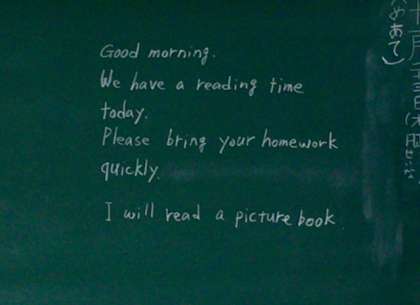 Good morning.
We have a reading time
today.
Please bring your homework
quickly.
I will read a picture book
めあて)